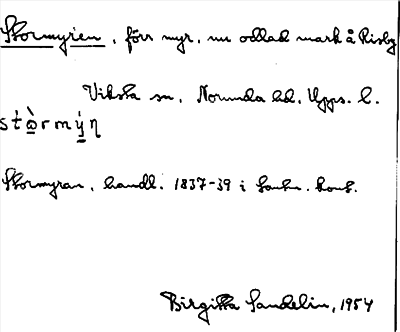 Stormyren, förr myr, nu odlad mark å Risby
Viksta sn, Norunda hd, Upps. l.
stòrmýn
Stormyran, handl. 1837-39 i Lantm. kont.
Birgitta Sandelin, 1954